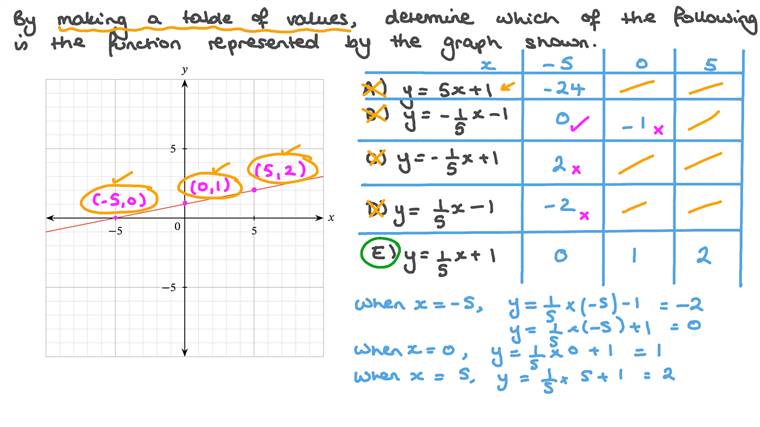 By making a table of values, determine which of the following
is the function represented by the graph shown.
x -5 0 5
A) y = 5x+1 -24
B) y = -1/5x-1 0 -1
C) y = -1/5x+1 2
D) y = 1/5x-1 -2
E) y = 1/5x+1 0 1 2
y
5
(-5,0) (0,1) (5,2)
-5 0 5 x
-5
when x = -5, y = 1/5 x (-5) -1 = -2
y = 1/5 x (-5) +1 = 0
when x = 0, y = 1/5 x 0 + 1 = 1
when x = 5, y = 1/5 x 5 + 1 = 2